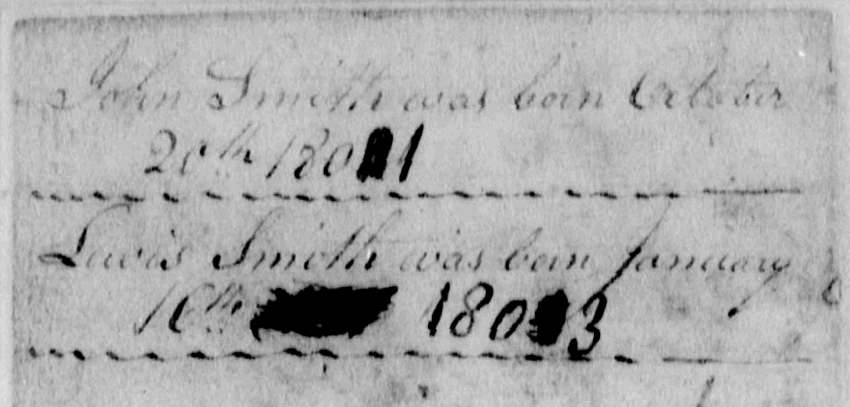 John Smith was born October
20th 1801
Lewis Smith was born January
16th 1803